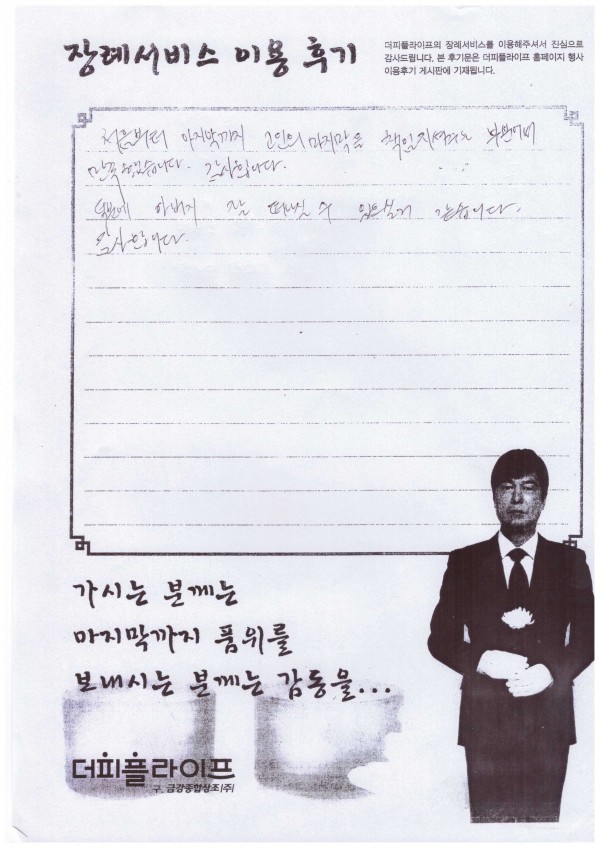 장례서비스 이용 후기
더피플라이프의 장례서비스를 이용해주셔서 진심으로
감사드립니다. 본 후기문은 더피플라이프 홈페이지 행사
이용후기 게시판에 기재됩니다.
처음부터 마지막까지 고인의 마지막을 책임져주는
만족했습니다. 감사합니다.
덕분에 아버지 잘 떠나실 수 있으실거 같습니다.
감사합니다.
가시는 분께는
마지막까지 품위를
보내시는 분께는 감동을...
더피플라이프
구. 금강종합상조(주)